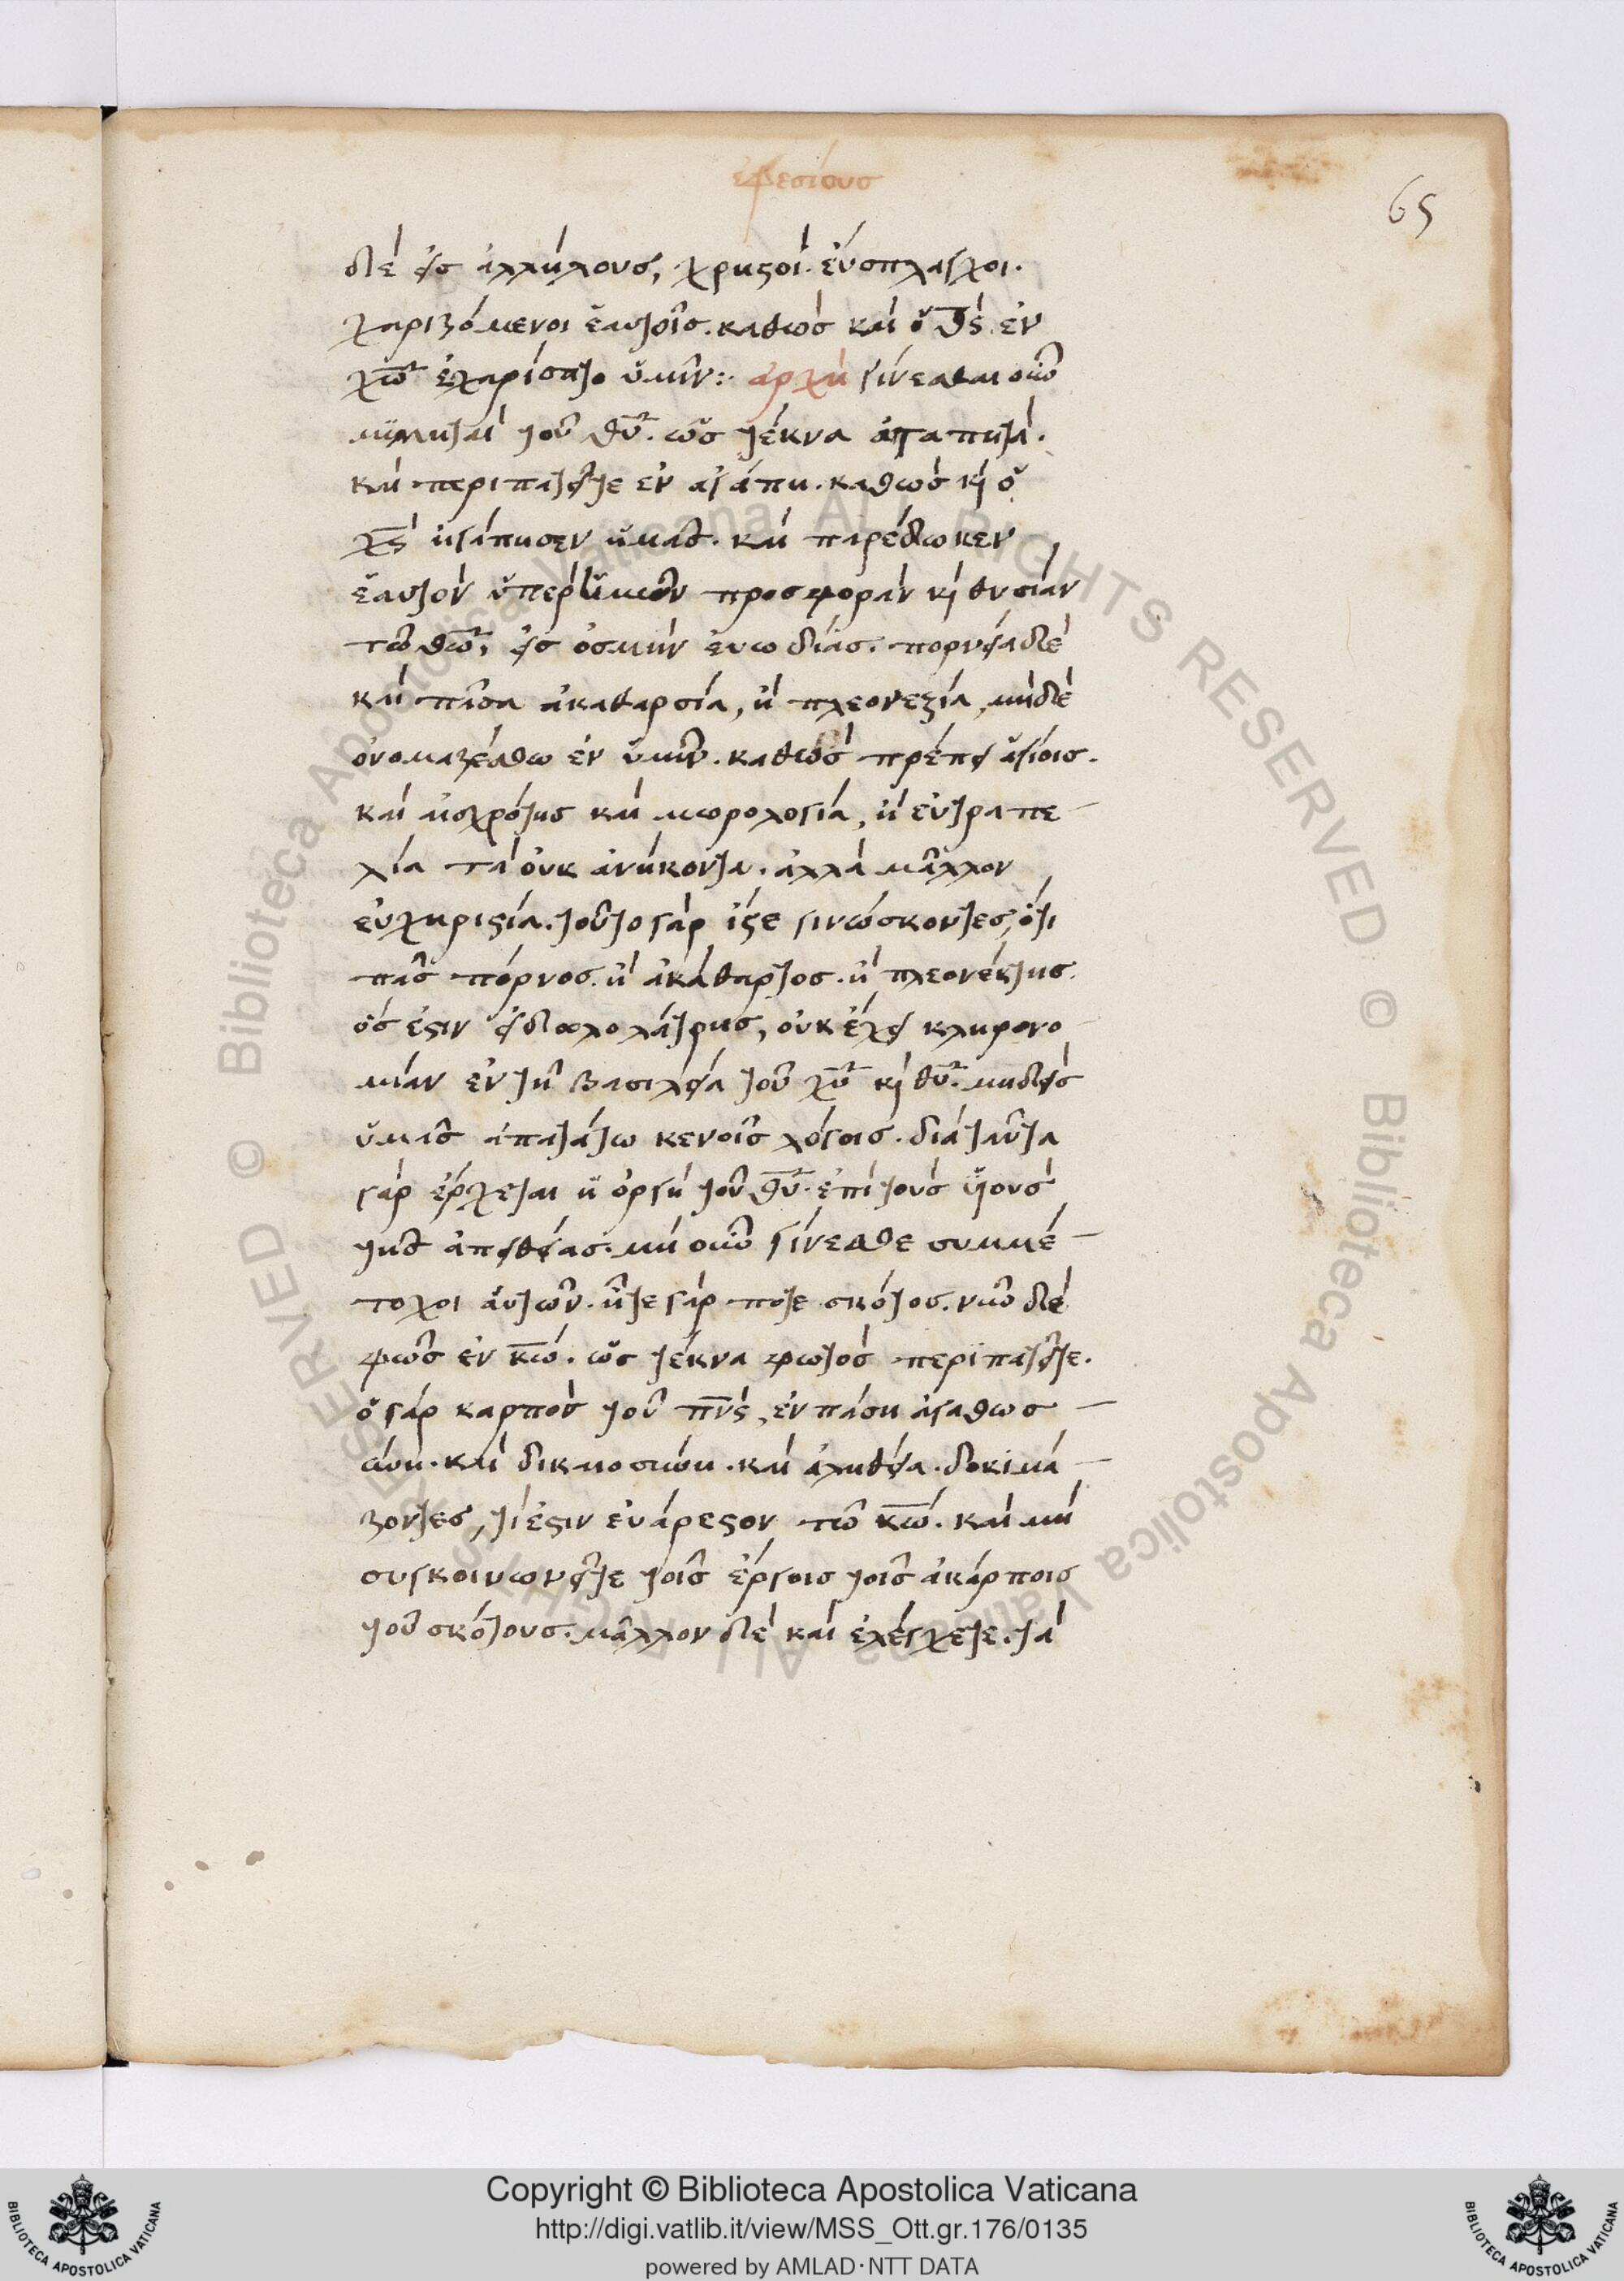 ἐφεσίους
65
δὲ εἰς ἀλλήλους, χρηστοὶ. ἐύσπλαγχοι.
χαριζόμενοι ἑαυτοῖς. καθὼς καὶ ὁ θς. ἐν
χῶ ἐχαρίσατο ὑμῖν: ἀρχὴ γίνεσθαι οὖν
μιμηταὶ τοῦ θῦ. ὡς τέκνα ἀγαπητά.
καὶ περιπατεῖτε ἐν ἀγάπη. καθὼς κὶ ὁ
χς ἠγάπησεν ὑμᾶς. καὶ παρέδωκεν
ἑαυτὸν ὑπὲρ ὑμῶν προσφορὰν κὶ θυσίαν
τῶ θῶ, εἰς ὀσμὴν ἐυωδίας. πορνεία δὲ
καὶ πᾶσα ἀκαθαρσία, ἢ πλεονεξία, μηδὲ
ὀνομαζέσθω ἐν ὑμῖν. καθὼς πρέπει ἁγίοις.
καὶ αἰσχρότης καὶ μωρολογία, ἢ εὐτραπε-
λία τὰ οὐκ ἀνήκοντα. ἀλλὰ μᾶλλον
εὐχαριστία. τοῦτο γὰρ ἴστε γινώσκοντες, ὅτι
πᾶς πόρνος. ἢ ἀκάθαρτος. ἢ πλεονέκτης.
ὅς ἐστιν εἰδωλολάτρης, οὐκ ἔχει κληρονο
μίαν ἐν τῆ βασιλεία τοῦ χῦ κὶ θῦ. μηδεὶς
ὑμᾶς ἀπατάτω κενοῖς λόγοις. διὰ ταῦτα
γὰρ ἔρχεται ἡ ὀργὴ τοῦ θῦ. ἐπὶ τοὺς ὑιοὺς
τῆς ἀπειθείας. μὴ οὖν γίνεσθε συμμέ-
τοχοι αὐτῶν. ἦτε γάρ ποτε σκότος. νῦν δὲ
φῶς ἐν κῶ. ὡς τέκνα φωτὸς περιπατεῖτε.
ὁ γὰρ καρπὸς τοῦ πνς, ἐν πάση ἀγαθωσ-
ύνη. καὶ δικαιοσύνη. καὶ ἀληθεία. δοκιμά-
ζοντες, τί ἐστιν εὐάρεστον τῶ κῶ. καὶ μὴ
συγκοινωνεῖτε τοῖς ἔργοις τοῖς ἀκάρποις
τοῦ σκότους. μᾶλλον δὲ καὶ ἐλέγχετε. τὰ
Copyright © Biblioteca Apostolica Vaticana
http://digi.vatlib.it/view/MSS_Ott.gr.176/0135
powered by AMLAD·NTT DATA